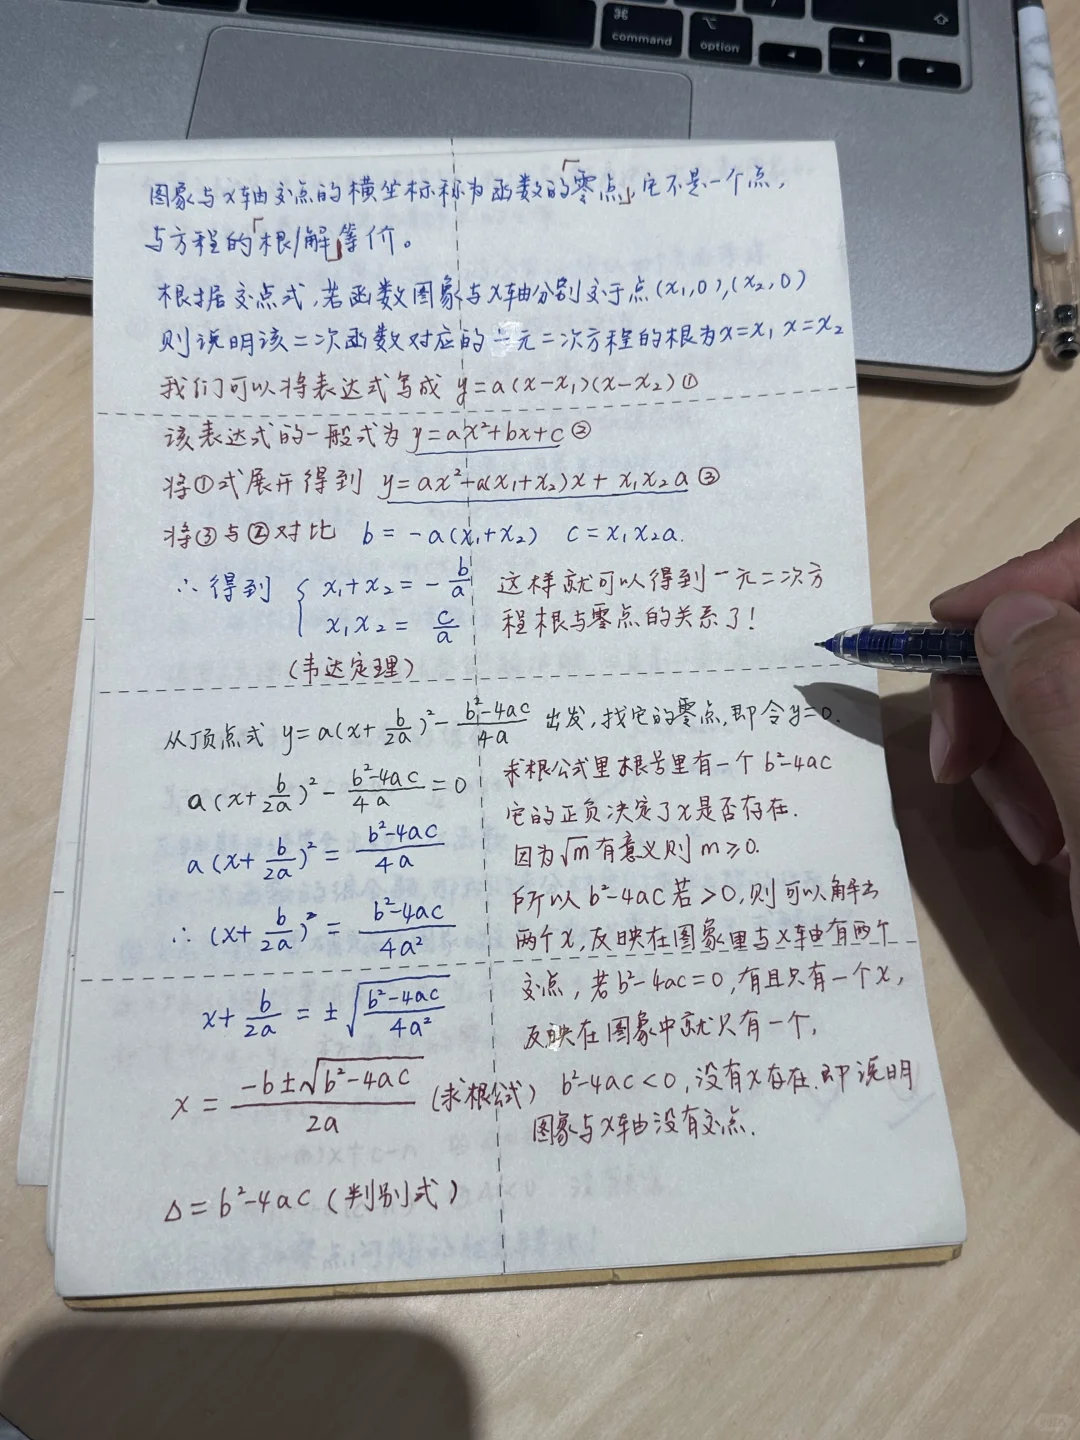 ⌘
command
⌥
option
图象与x轴交点的横坐标称为函数的「零点」,它不是一个点,
与方程的「根/解」等价。
根据交点式,若函数图象与x轴分别交于点(x₁,0),(x₂,0)
则说明该二次函数对应的一元二次方程的根为x=x₁ x=x₂
我们可以将表达式写成 y=a(x-x₁)(x-x₂)①
该表达式的一般式为 y=ax²+bx+c ②
将①式展开得到 y=ax²+a(x₁+x₂)x+x₁x₂a ③
将③与②对比 b=-a(x₁+x₂) c=x₁x₂a.
∴得到 { x₁+x₂=-b/a
x₁x₂=c/a
(韦达定理)
这样就可以得到一元二次方
程根与零点的关系了!
从顶点式 y=a(x+b/2a)²-b²-4ac/4a 出发,找它的零点,即令y=0.
a(x+b/2a)²-b²-4ac/4a=0
a(x+b/2a)²=b²-4ac/4a
∴(x+b/2a)²=b²-4ac/4a²
x+b/2a=±√b²-4ac/4a²
x=-b±√b²-4ac/2a (求根公式)
Δ=b²-4ac(判别式)
求根公式里根号里有一个b²-4ac
它的正负决定了x是否存在.
因为√m有意义则m≥0.
所以b²-4ac若>0,则可以解出
两个x,反映在图象里与x轴有两个
交点,若b²-4ac=0,有且只有一个x,
反映在图象中就只有一个,
b²-4ac<0,没有x存在.即说明
图象与x轴没有交点.